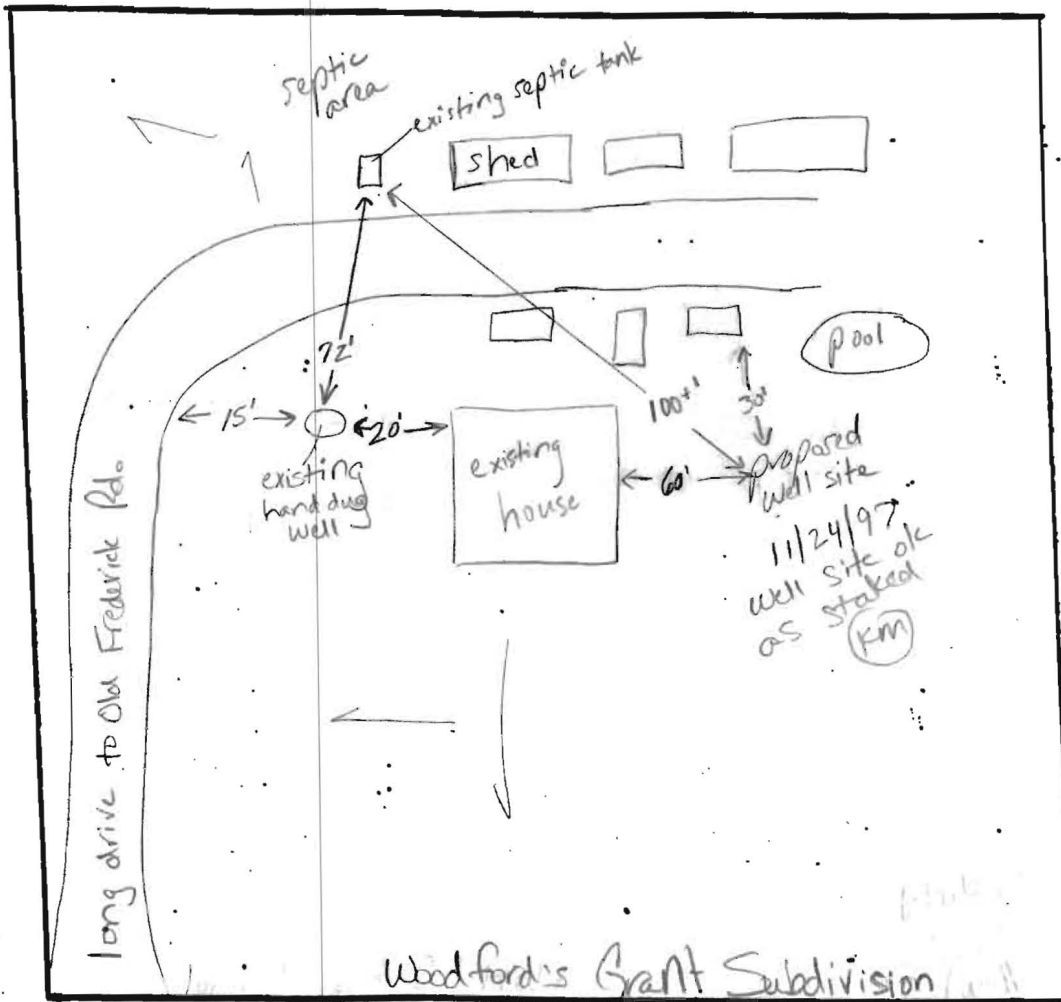 septic
area
existing septic tank
shed
72'
pool
15'
20'
100+'
30'
existing
hand dug
well
existing
house
60'
proposed
well site
11/24/97
well site ok
as staked
KM
long drive to Old Frederick Rd.
Woodford's Grant Subdivision